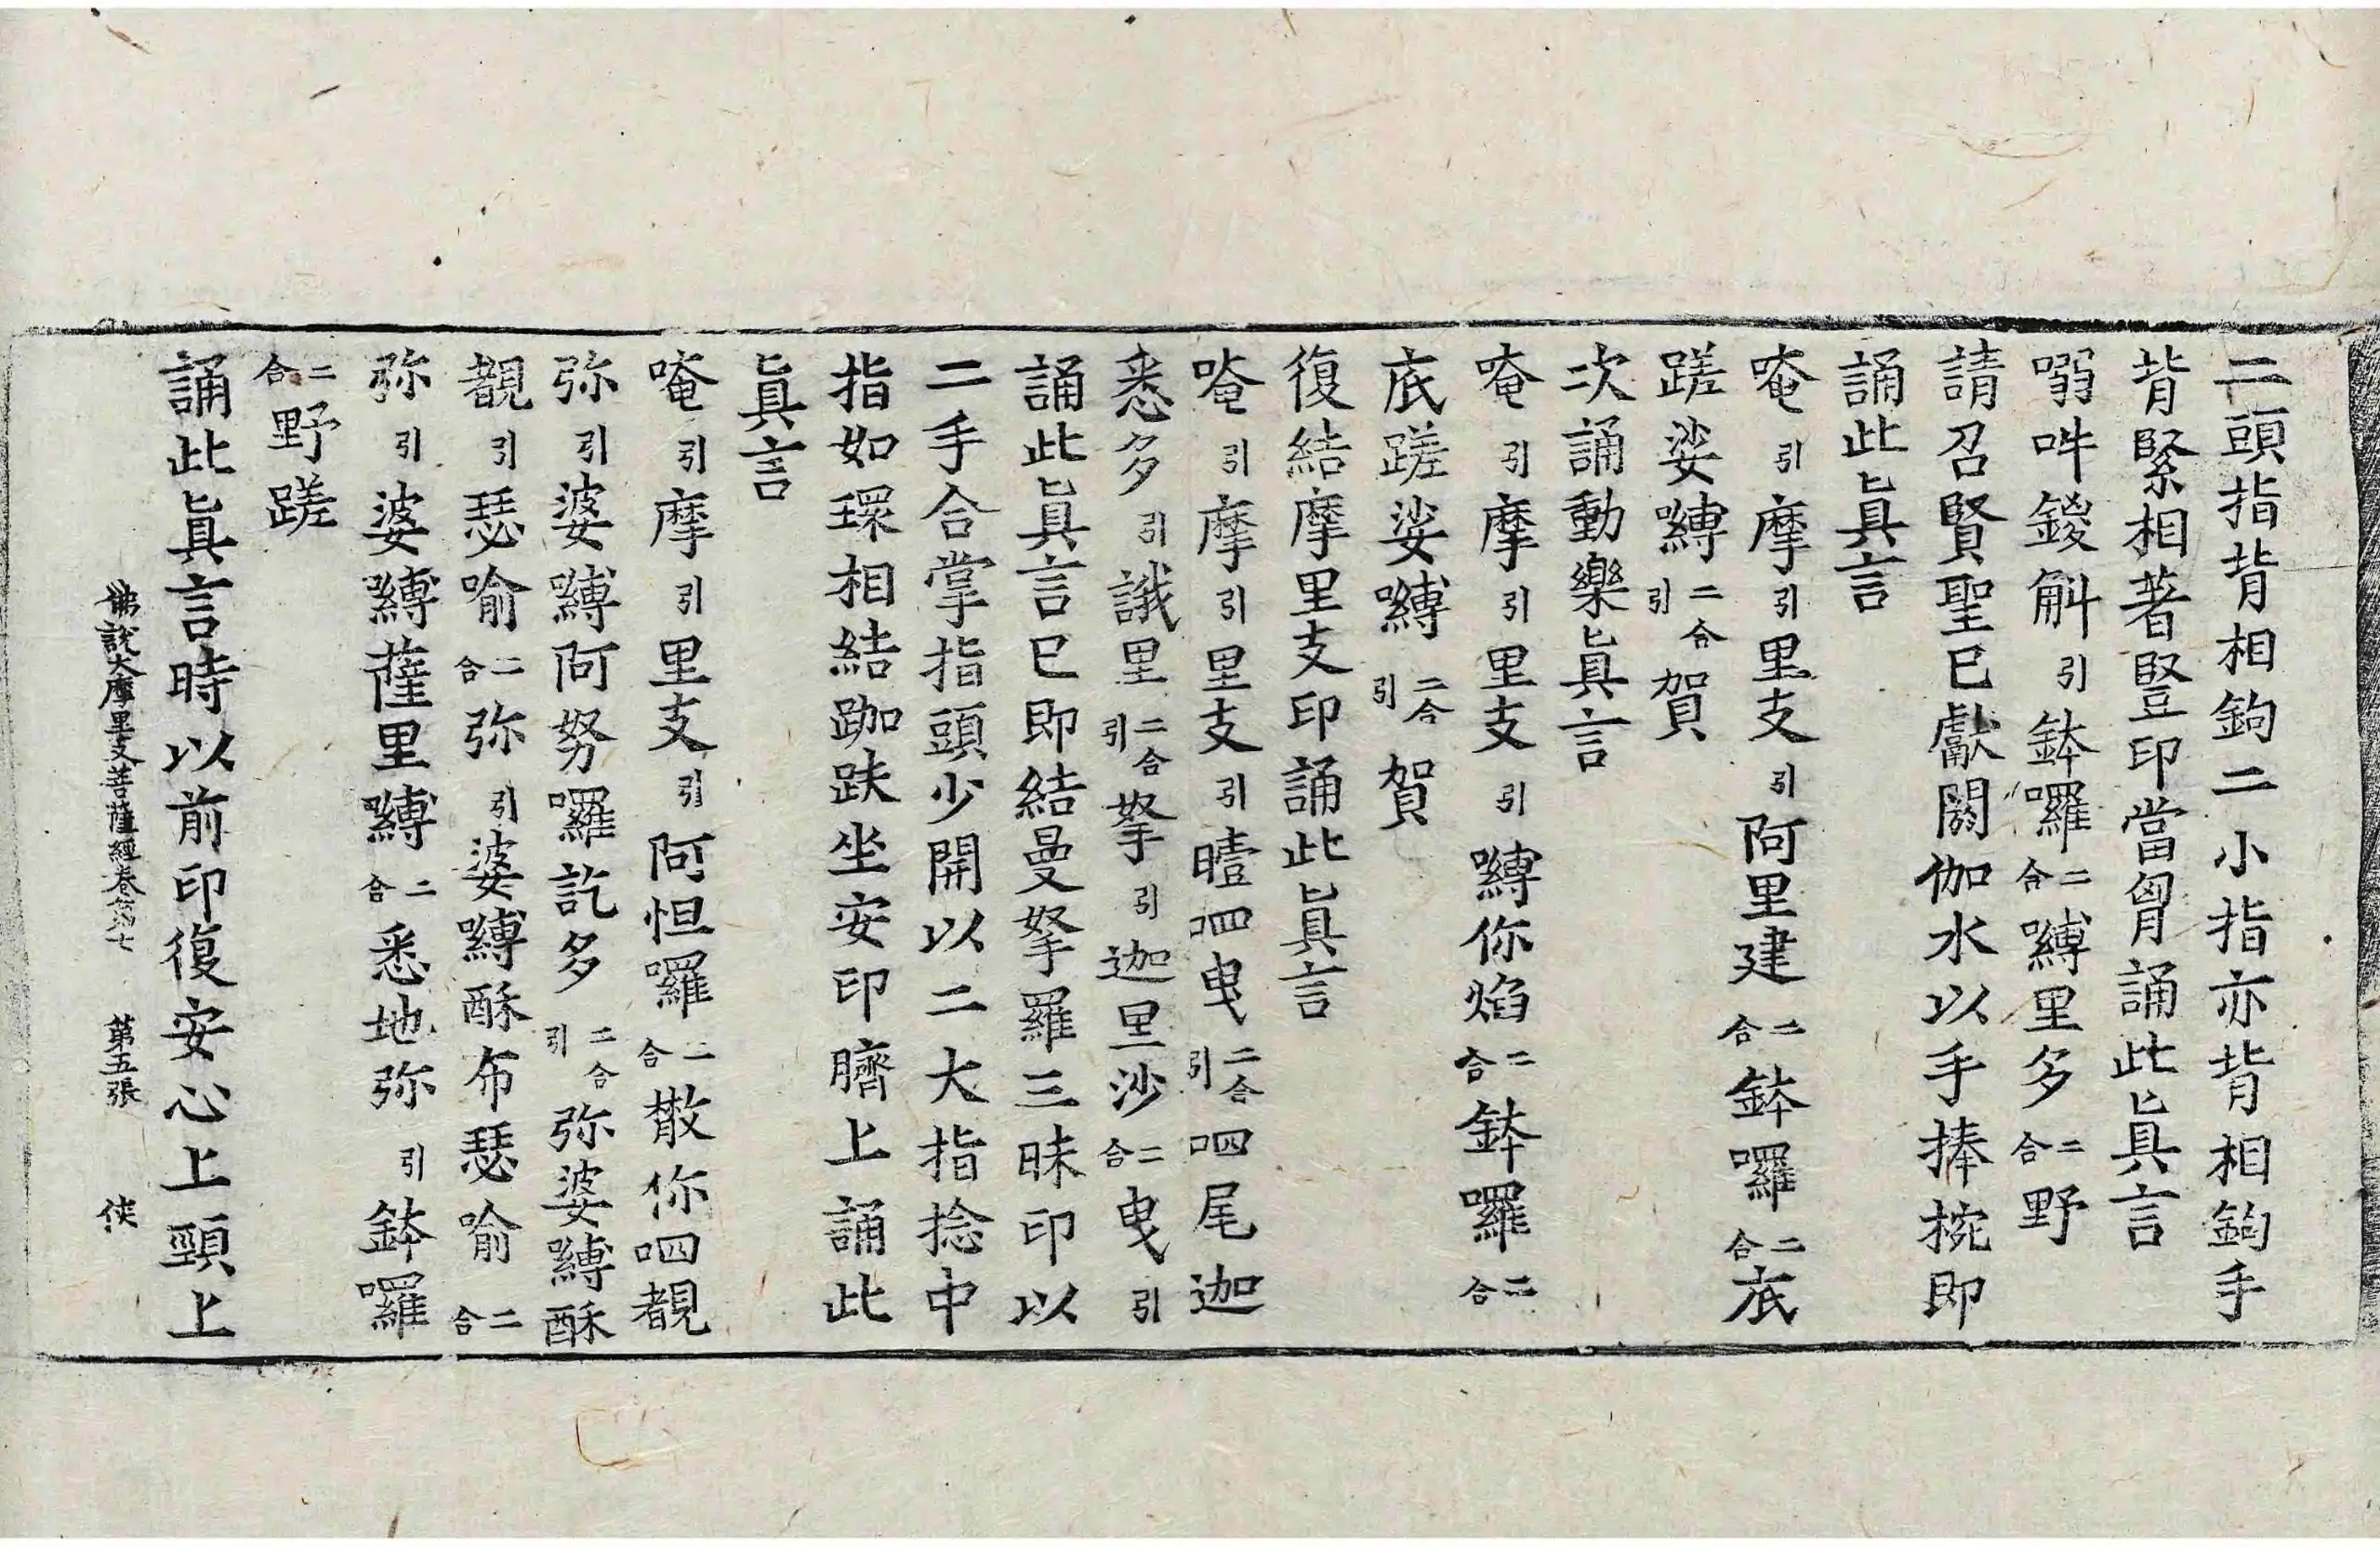 二頭指背相鉤二小指亦背相鉤手
背緊相著豎印當胷誦此真言
嗗吽鍐斛引鉢囉二合嚩里多二合野
請召賢聖已獻閼伽水以手捧捥即
誦此真言
唵引摩引里支引阿里建二合鉢囉二合底
蹉娑嚩二合引賀
次誦動樂真言
唵引摩引里支引嚩你焰二合鉢囉二合
底蹉娑嚩二合引賀
復結摩里支印誦此真言
唵引摩引里支引曀呬曳二合引呬尾迦
悉多引誐里二合引拏引迦里沙二合曳引
誦此真言已即結曼拏羅三昧印以
二手合掌指頭少開以二大指捻中
指如環相結跏趺坐安印臍上誦此
真言
唵引摩引里支引阿怛囉二合散你呬覩
弥引婆嚩阿努囉訖多二合引弥婆嚩酥
覩引瑟喻二合弥引婆嚩酥布瑟喻二合
弥引婆嚩薩里嚩二合悉地弥引鉢囉
二合野蹉
誦此真言時以前印復安心上頸上
佛說大摩里支菩薩經卷第七 第五張 俠